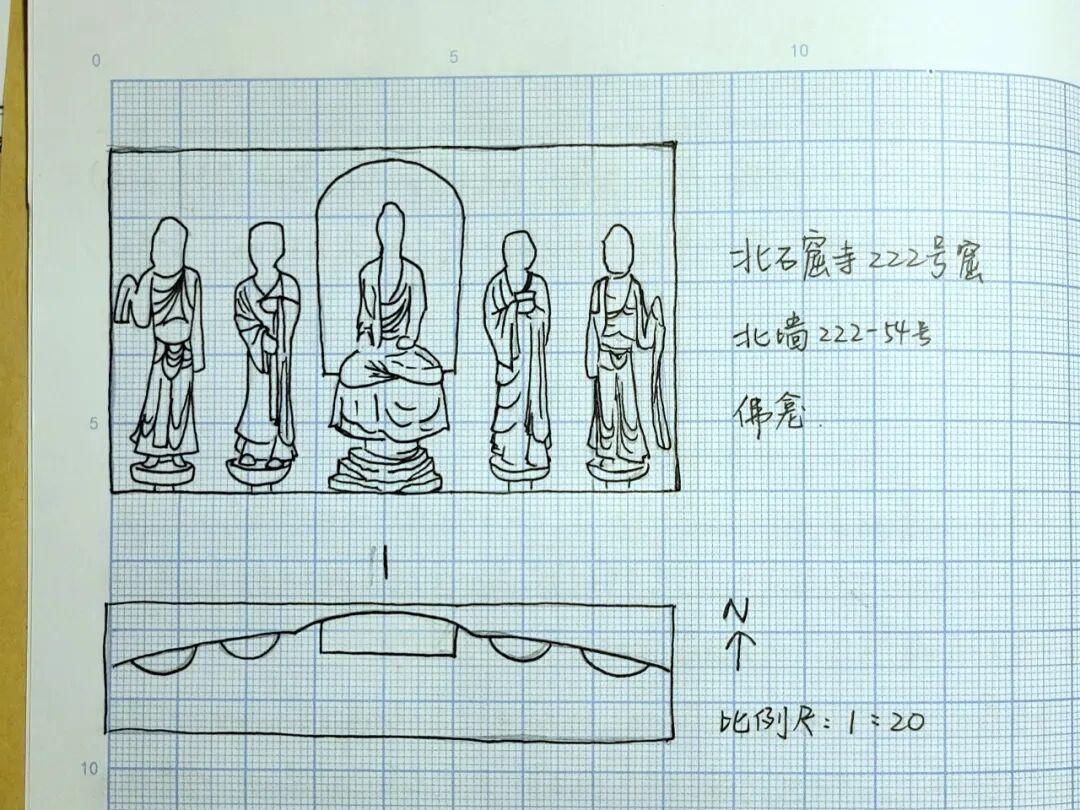 0
5
10
北石窟寺222号窟
北墙222-54号
佛龛.
5
1
N
比例尺:1:20
10